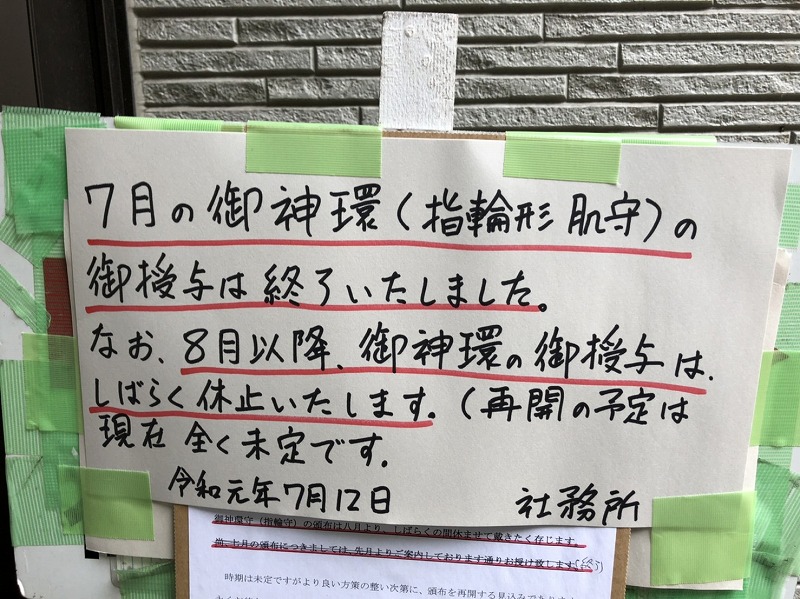 7月の御神環(指輪形 肌守)の
御授与は終了いたしました。
なお、8月以降、御神環の御授与は、
しばらく休止いたします。(再開の予定は
現在 全く未定です。
令和元年7月12日 社務所
御神環守(指輪守)の頒布は八月より、しばらくの間休ませて戴きたく存じます
尚 七月の頒布につきましては 先月よりご案内しております通りお授け致します(終了)
時期は未定ですがより良い方策の整い次第に、頒布を再開する見込みであります